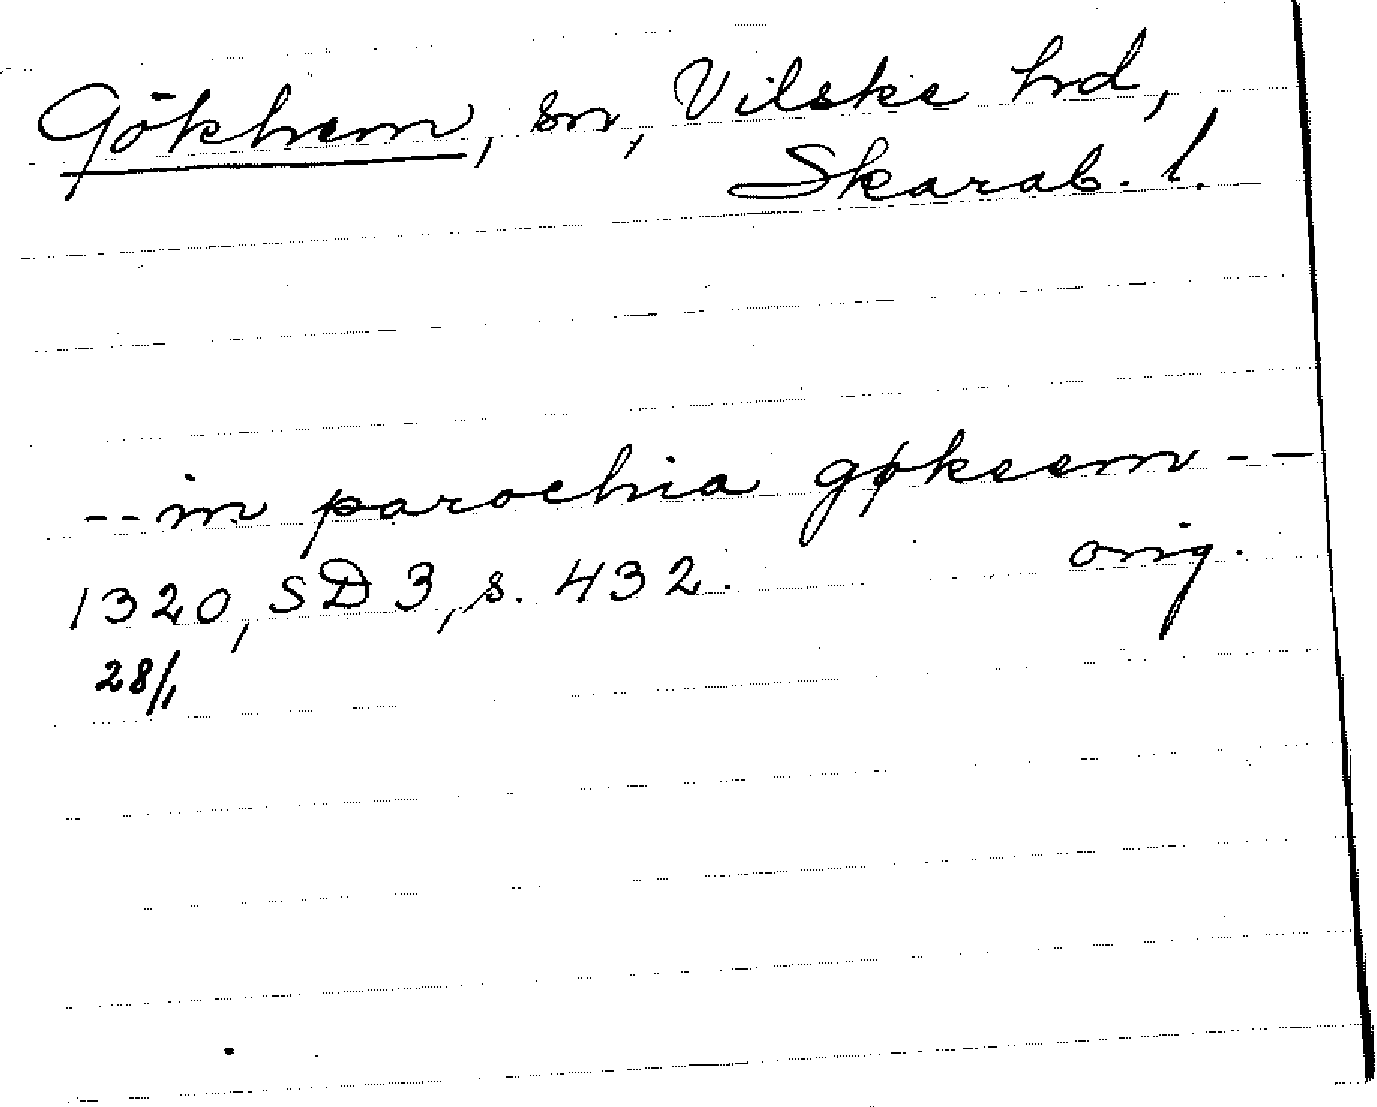 Gökhem, sn, Vilske hd,
Skarab. l.
-- in parochia gøkeem --
1320, SD 3, s. 432. orig.
28/1